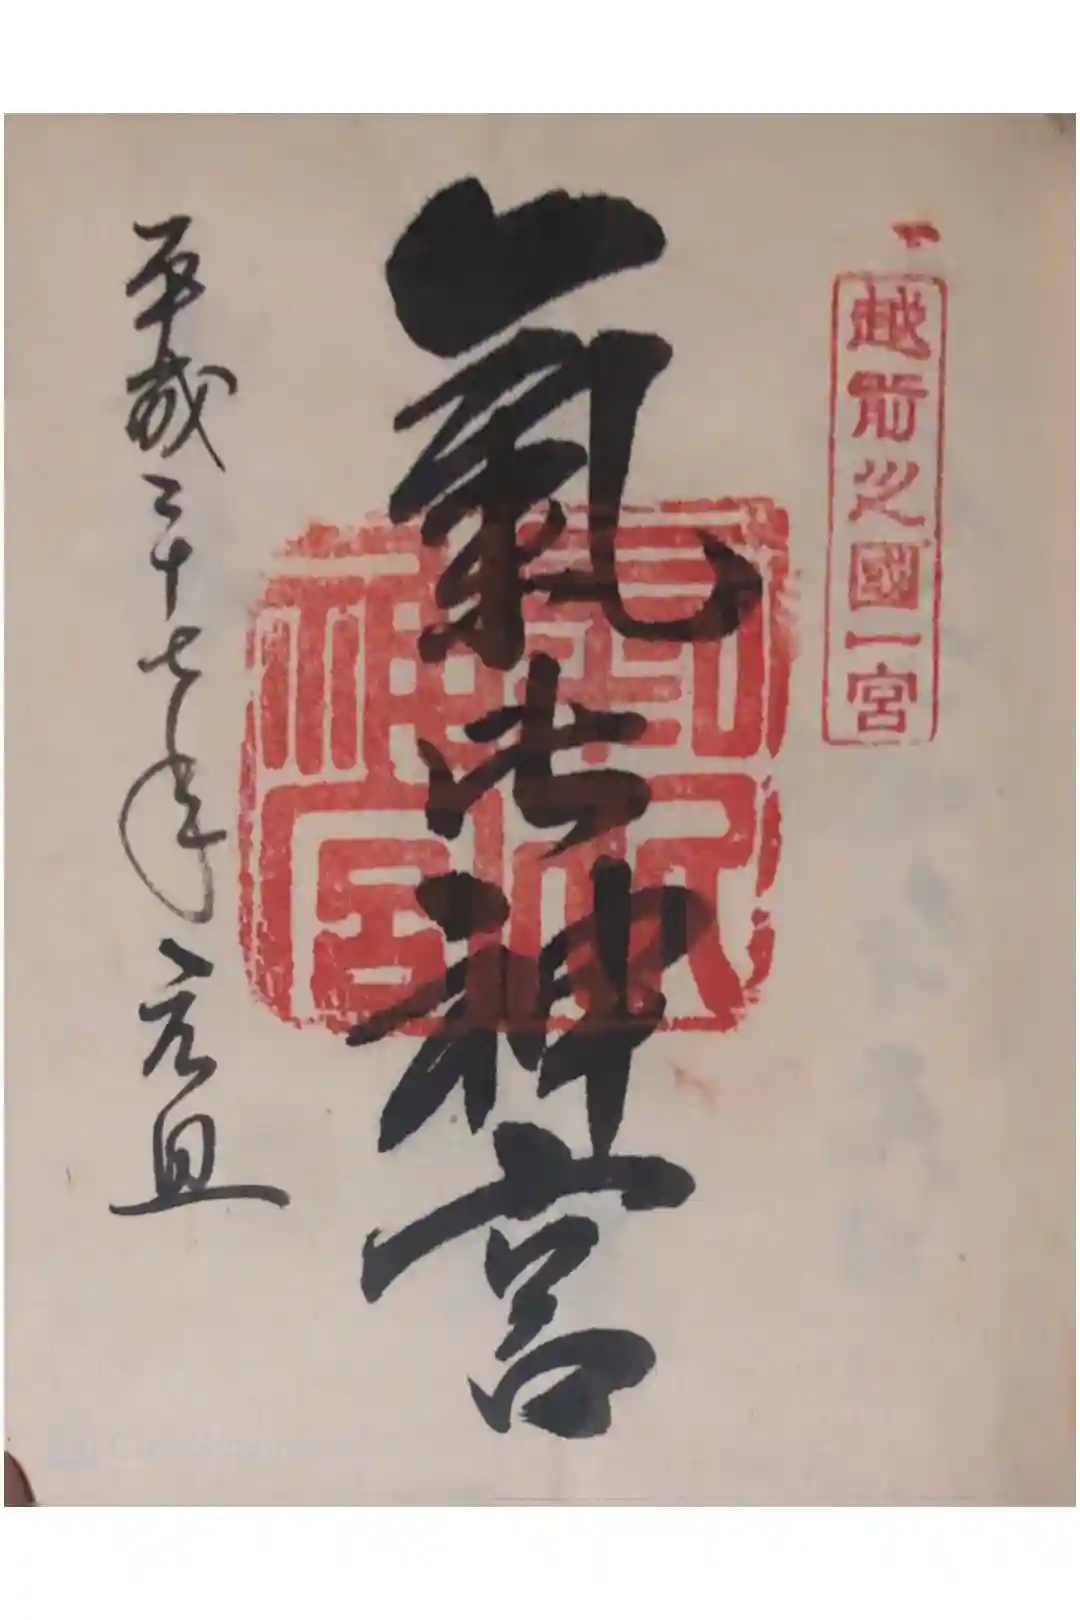 越前之國一宮
氣比神宮
平成二十七年元旦